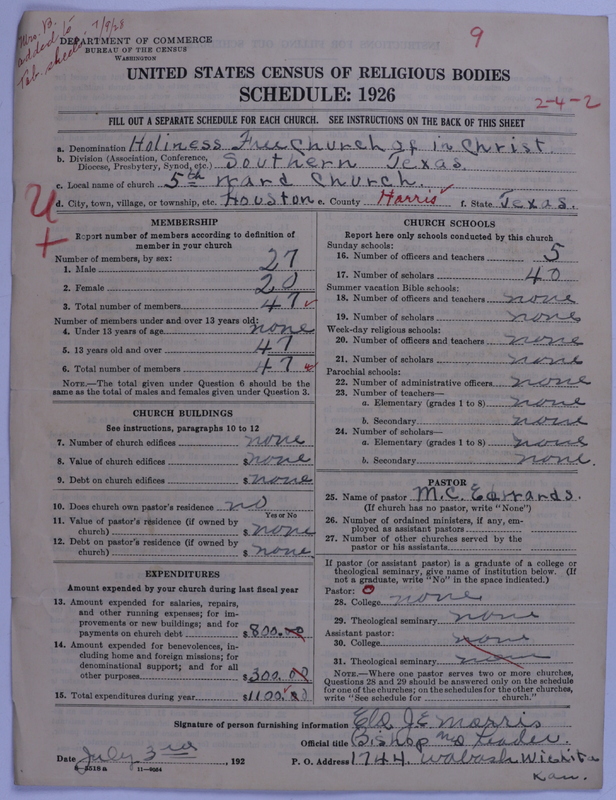 Mrs. B.
added to
Tab. sheets 7/9/28
9
DEPARTMENT OF COMMERCE
BUREAU OF THE CENSUS
WASHINGTON
UNITED STATES CENSUS OF RELIGIOUS BODIES
SCHEDULE: 1926
2-4-2
FILL OUT A SEPARATE SCHEDULE FOR EACH CHURCH. SEE INSTRUCTIONS ON THE BACK OF THIS SHEET
a. Denomination Holiness Free Church of in Christ
b. Division (Association, Conference,
Diocese, Presbytery, Synod, etc.) Southern Texas
c. Local name of church 5th Ward Church.
d. City, town, village, or township, etc. Houston e. County Harris f. State Texas.
U
+
MEMBERSHIP
Report number of members according to definition of
member in your church
Number of members, by sex:
1. Male 27
2. Female 20
3. Total number of members 47
Number of members under and over 13 years old:
4. Under 13 years of age none
5. 13 years old and over 47
6. Total number of members 47
NOTE.—The total given under Question 6 should be the
same as the total of males and females given under Question 3.
CHURCH BUILDINGS
See instructions, paragraphs 10 to 12
7. Number of church edifices none
8. Value of church edifices $ none
9. Debt on church edifices $ none
10. Does church own pastor's residence no
Yes or No
11. Value of pastor's residence (if owned by
church) $ none
12. Debt on pastor's residence (if owned by
church) $ none
EXPENDITURES
Amount expended by your church during last fiscal year
13. Amount expended for salaries, repairs,
and other running expenses; for im-
provements or new buildings; and for
payments on church debt $ 800.00
14. Amount expended for benevolences, in-
cluding home and foreign missions; for
denominational support; and for all
other purposes $ 300.00
15. Total expenditures during year $ 1100.00
CHURCH SCHOOLS
Report here only schools conducted by this church
Sunday schools:
16. Number of officers and teachers 5
17. Number of scholars 40
Summer vacation Bible schools:
18. Number of officers and teachers none
19. Number of scholars none
Week-day religious schools:
20. Number of officers and teachers none
21. Number of scholars none
Parochial schools:
22. Number of administrative officers none
23. Number of teachers—
a. Elementary (grades 1 to 8) none
b. Secondary none
24. Number of scholars—
a. Elementary (grades 1 to 8) none
b. Secondary none.
PASTOR
25. Name of pastor M.C. Edwards.
(If church has no pastor, write "None")
26. Number of ordained ministers, if any, em-
ployed as assistant pastors
27. Number of other churches served by the
pastor or his assistants
If pastor (or assistant pastor) is a graduate of a college or
theological seminary, give name of institution below. (If
not a graduate, write "No" in the space indicated.)
Pastor: 0
28. College none
29. Theological seminary none
Assistant pastor:
30. College none
31. Theological seminary none
NOTE.—Where one pastor serves two or more churches,
Questions 28 and 29 should be answered only on the schedule
for one of the churches; on the schedules for the other churches,
write "See schedule for church."
Signature of person furnishing information Eld J E Morris
Official title Bishop Leader.
Date July 3rd, 192
P. O. Address 1744 Wabash Wichita
Kan.
8—3518a 11—9064